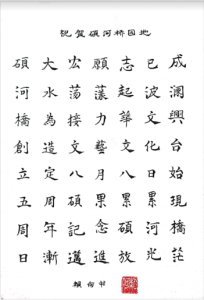 祝賀碩河桥园地
碩大宏願志已成
河水蕩漾起波瀾
橋為接力華文興
創造文藝文化台
立定八月八日始
五周碩果累累現
周年記念碩河橋
日漸邁進放光茫